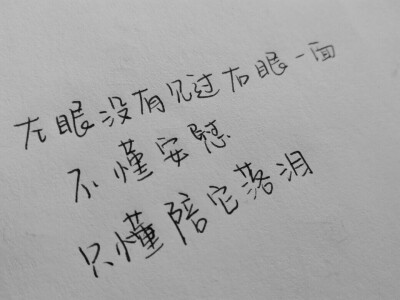 左眼没有见过右眼一面
不懂安慰
只懂陪它落泪